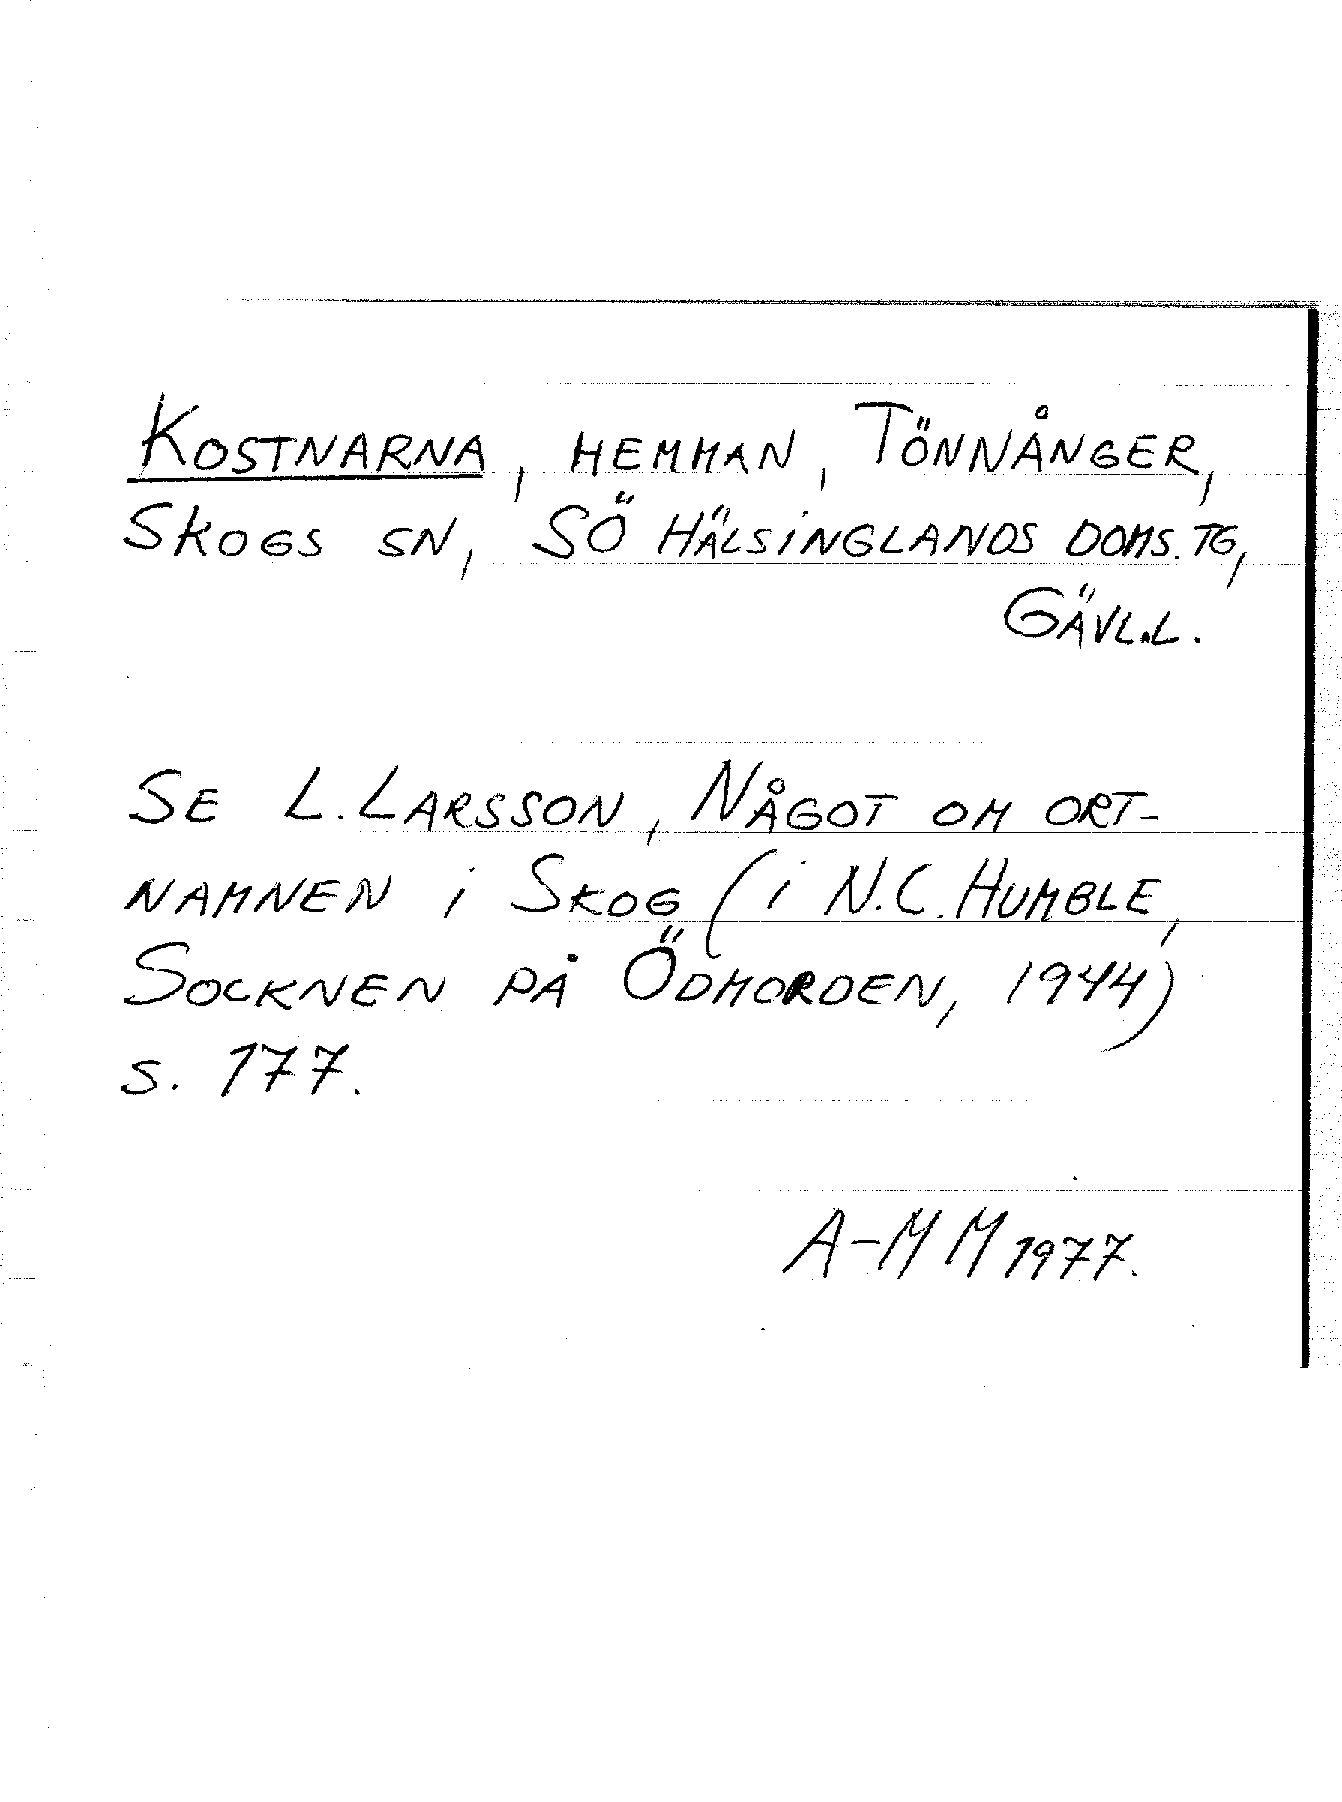 KOSTNARNA, HEMMAN, TÖNNÅNGER,
SKOGS SN, SÖ HÄLSINGLANDS DOMS. TG,
GÄVL.L.
SE L. LARSSON, NÅGOT OM ORT-
NAMNEN i SKOG (i N.C. HUMBLE,
SOCKNEN PÅ ÖDMORDEN, 1944)
S. 177.
A-M M 1977.